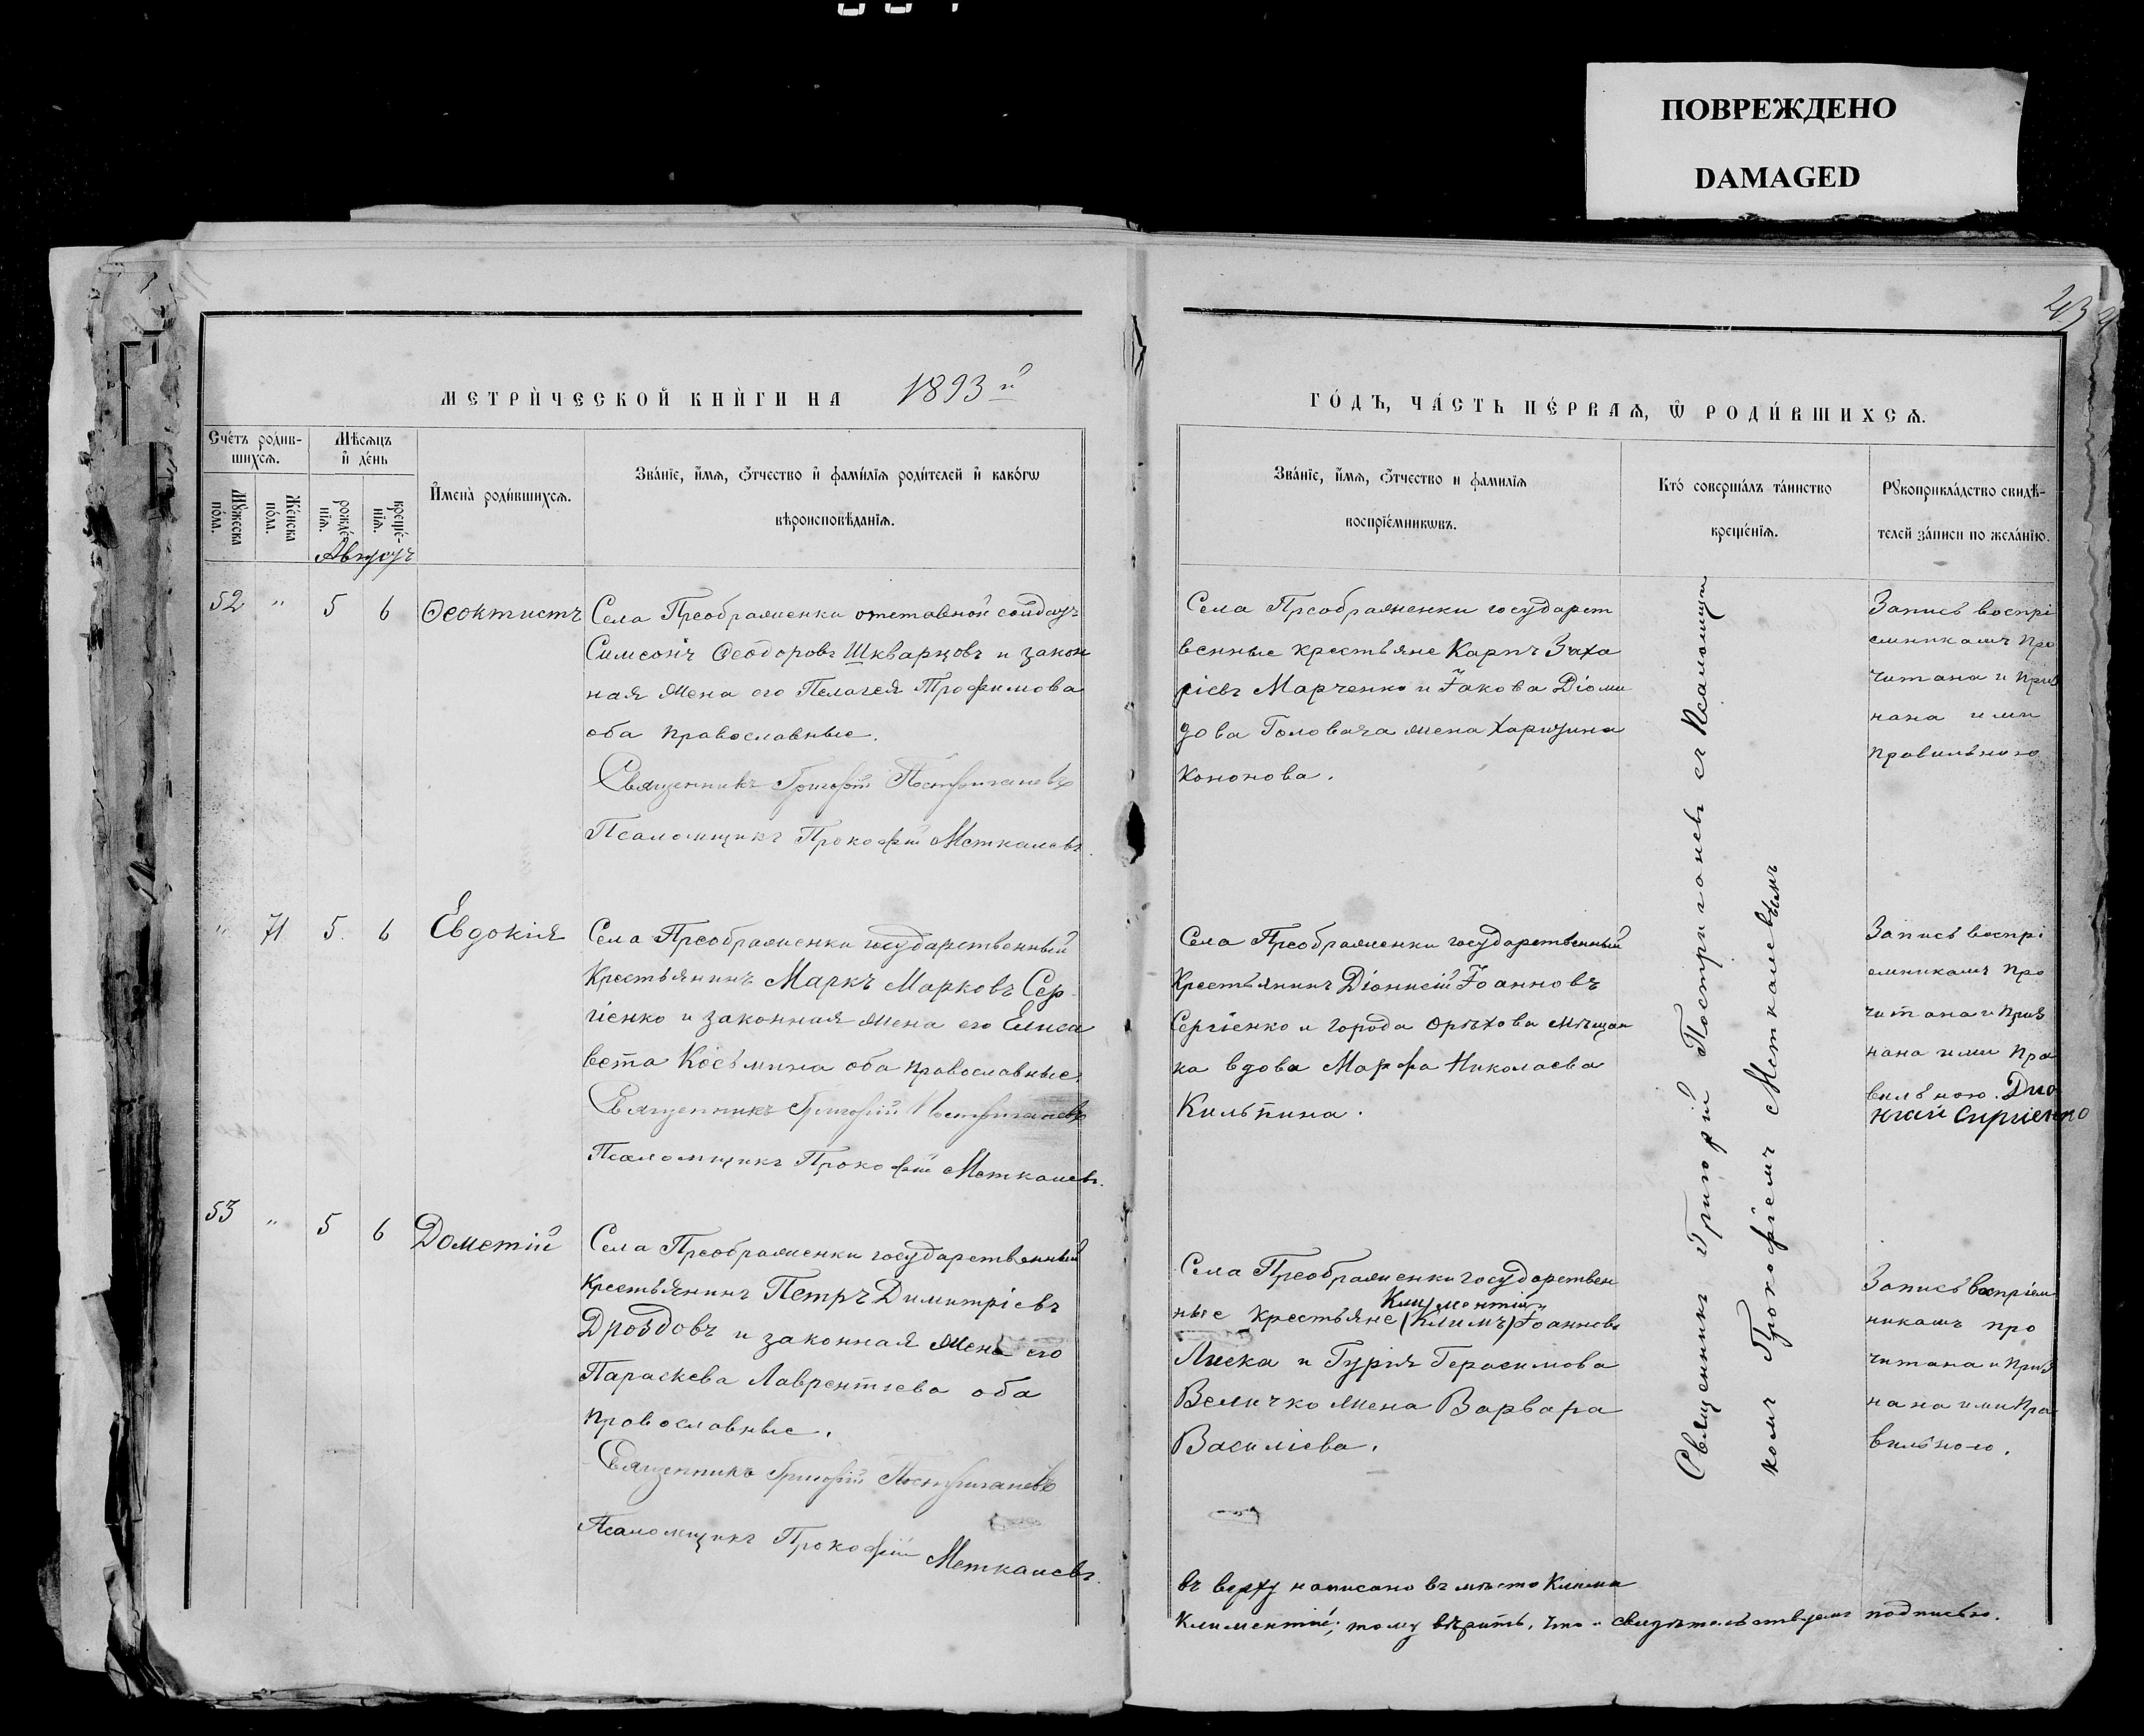 ПОВРЕЖДЕНО
DAMAGED
МЕТРИ́ЧЕСКОЙ КНИ́ГИ НА 1893 й
ГО́ДЪ, ЧА́СТЬ ПЕ́РВАѦ, Ѿ РОДИ́ВШИХСѦ.
Сче́тъ роди́в-
шихсѧ.
Мꙋ́жеска
по́ла.
Же́нска
по́ла.
Мѣ́сѧцъ
и҆ де́нь
рожде́-
нїѧ.
креще́-
нїѧ.
Августъ
И҆мена̀ роди́вшихсѧ.
Зва́нїе, и҆́мѧ, ѻ҆́тчество и҆ фами́лїѧ роди́телей и҆ како́гѡ
вѣроисповѣ́данїѧ.
Зва́нїе, и҆́мѧ, ѻ҆́тчество и фами́лїѧ
воспрїе́мникѡвъ.
Кто̀ соверша́лъ та́инство
креще́нїѧ.
Рꙋкоприкла́дство свидѣ́-
телей за́писи по жела́нїю.
52 " 5 6 Ѳеоктистъ
Села Преображенки отставной солдатъ
Симеонъ Ѳеодоровъ Шкварцовъ и закон
ная жена его Пелагея Трофимова
оба православные.
Священникъ Григорій Постригачевъ
Псаломщикъ Прокофій Меткалевъ.
Села Преображенки государст
венные крестьяне Карпъ Заха
ріевъ Марченко и Іакова Діоми
дова Головача жена Харитина
Кононова.
Запись воспрі
емникамъ про
читана и приз
нана ими
правильною
" 71 5. 6 Евдокія
Села Преображенки государственный
крестьянинъ Маркъ Марковъ Сер
гіенко и законная жена его Елиса
вета Косьмина оба православные.
Священникъ Григорій Постригачевъ
Псаломщикъ Прокофій Меткалевъ.
Села Преображенки государственный
крестьянинъ Діонисій Іоанновъ
Сергіенко и города Орѣхова мѣщан
ка вдова Марфа Николаева
Кильпина.
Запись воспрі
емникамъ про
читана и приз
нана ими пра
вильною. Дио
Сиргіенко
53 " 5 6 Дометій
Села Преображенки государственный
крестьянинъ Петръ Димитріевъ
Дроздовъ и законная жена его
Параскева Лаврентіева оба
православные.
Священникъ Григорій Постригачевъ
Псаломщикъ Прокофій Меткалевъ.
Села Преображенки государствен
Климентій
ные крестьяне (Климъ) Іоанновъ
Лиска и Гурія Герасимова
Величко жена Варвара
Василіева.
Запись воспріем
никамъ про
читана и приз
нана ими пра
вильною.
Священникъ Григорій Постригачевъ съ Псаломщи
комъ Прокофіемъ Меткалевымъ
въ верху написано въ мѣсто Клима
Климентій; тому вѣрить, что и свидѣтельствуемъ подписью.